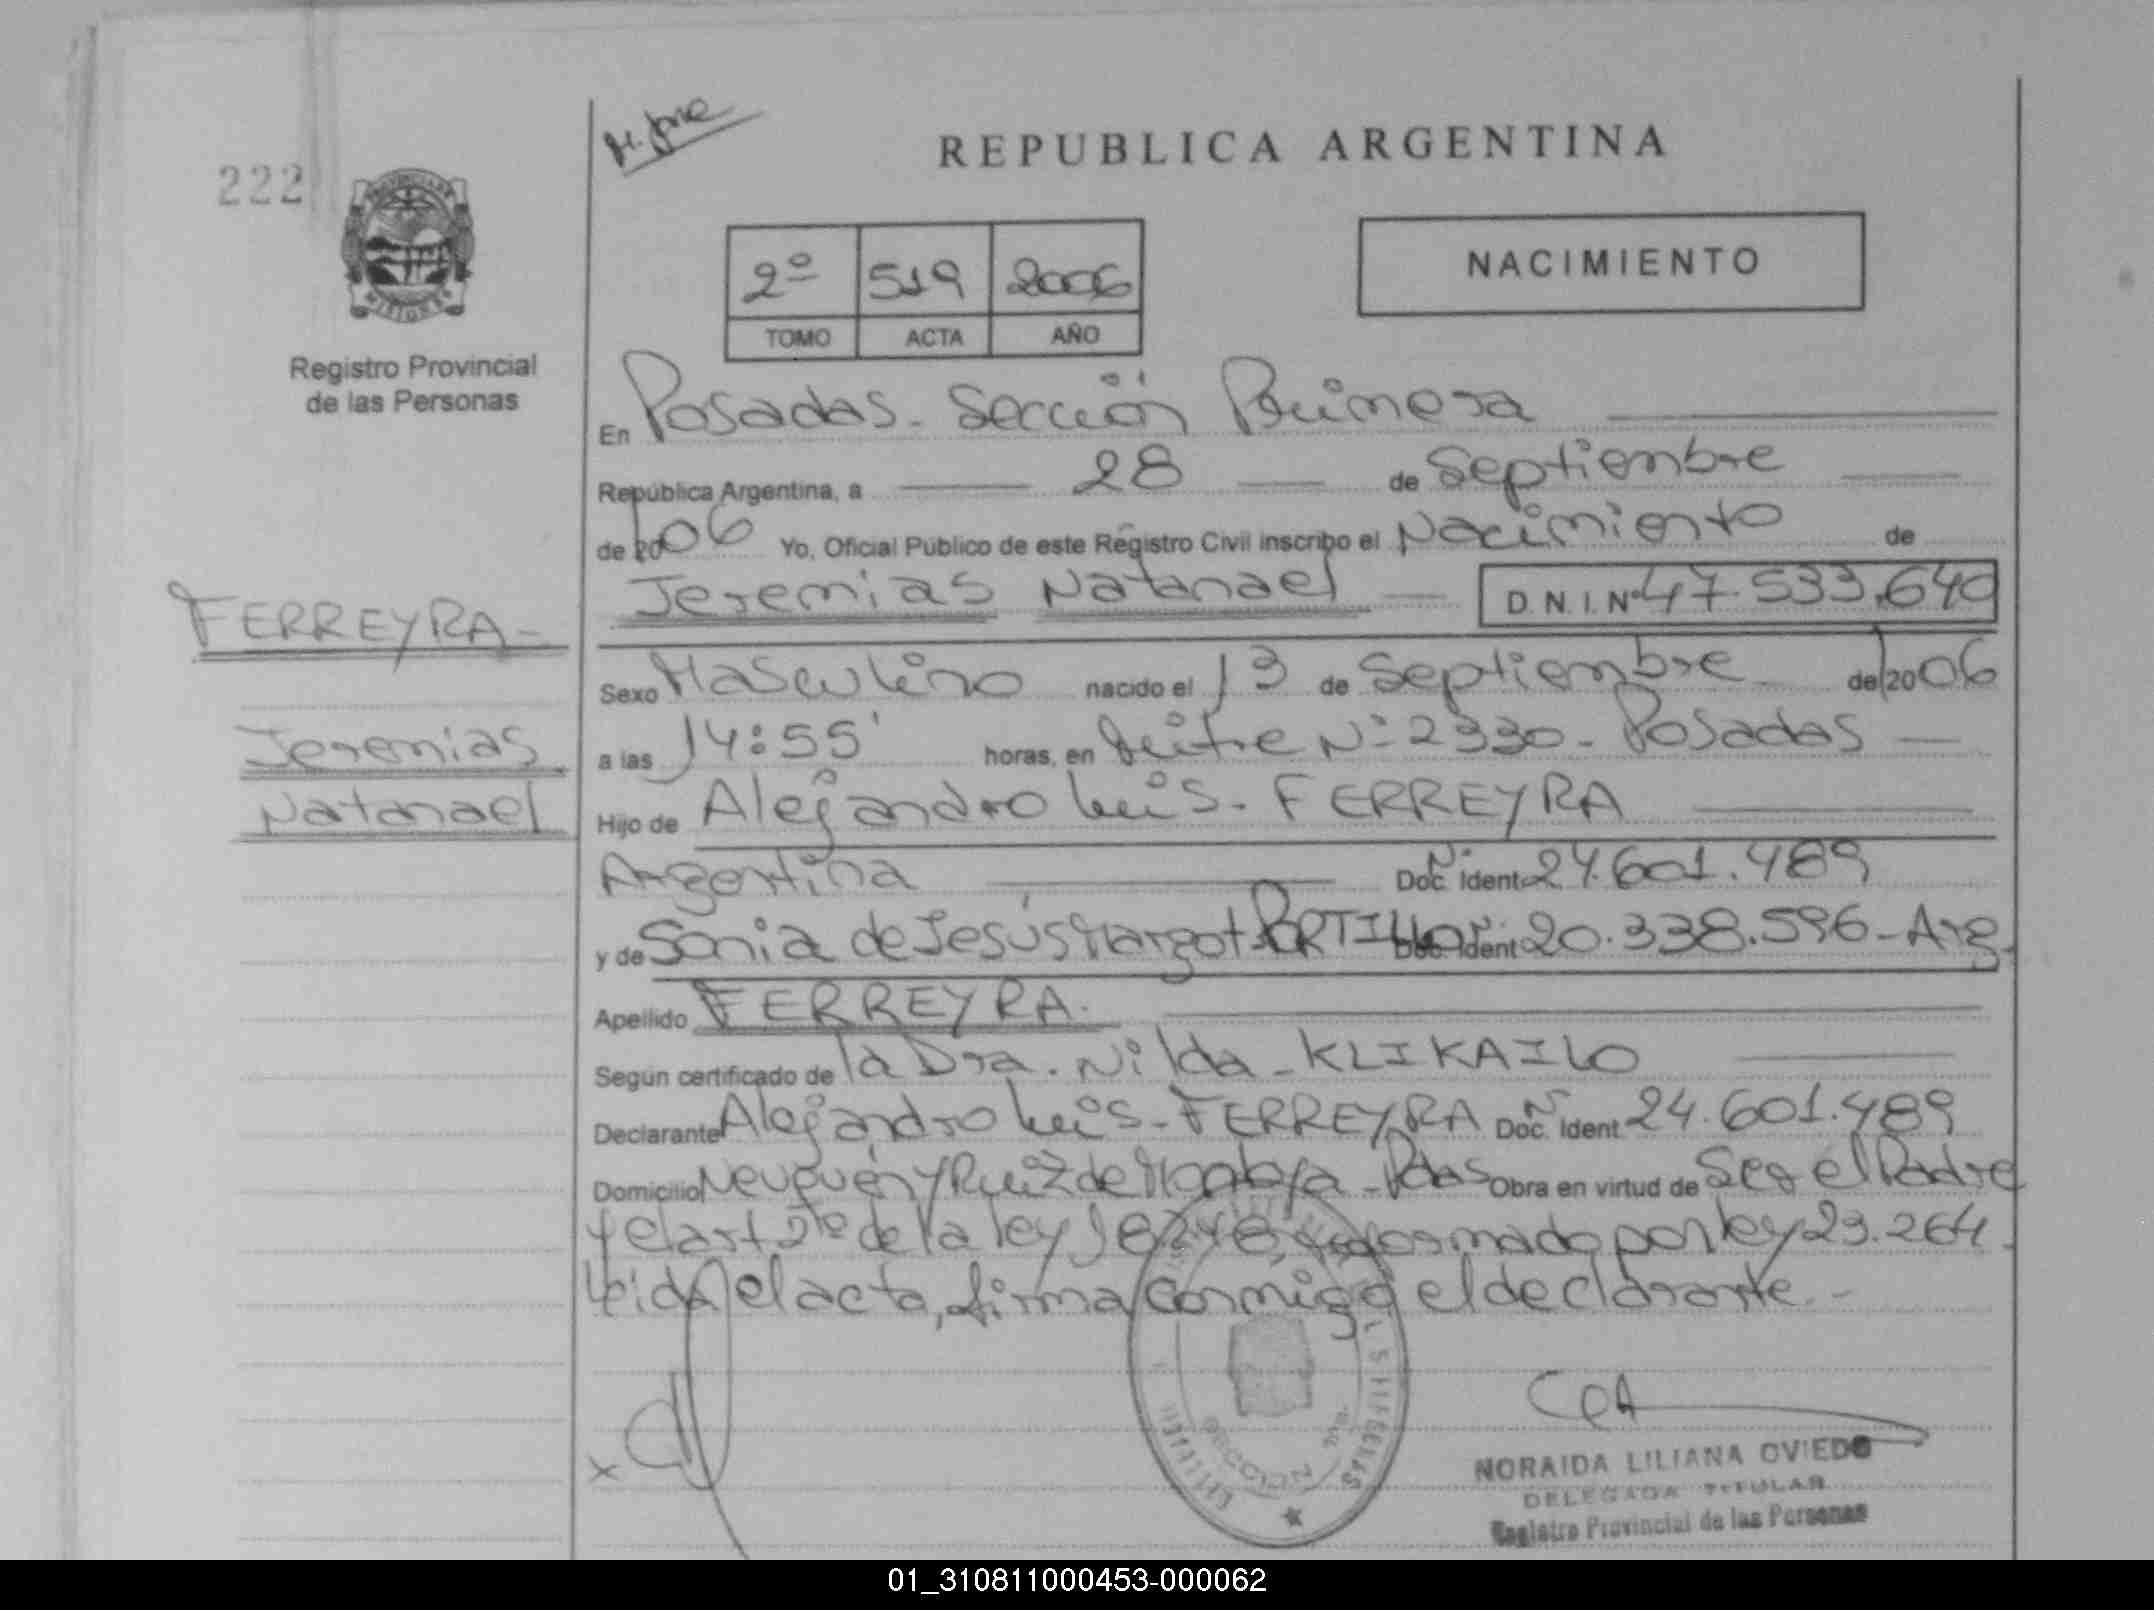 222
M. Jose
REPUBLICA ARGENTINA
2º 519 2006
TOMO ACTA AÑO
NACIMIENTO
Registro Provincial
de las Personas
En Posadas - Sección Primera
República Argentina, a 28 de Septiembre
de 2006 Yo, Oficial Público de este Registro Civil inscribo el Nacimiento de
Jeremias Natanael D.N.I. Nº 47.533.640
FERREYRA -
Jeremias
Natanael
Sexo Masculino nacido el 13 de Septiembre de 2006
a las 14:55' horas, en Mitre Nº 2330 - Posadas
Hijo de Alejandro Luis - FERREYRA
Argentina Doc. Ident Nº 24.601.489
y de Sonia de Jesús Margot - PORTILLO Doc. Ident Nº 20.338.596 - Arg.
Apellido FERREYRA.
Según certificado de la Dra. Nilda - KLIKAILO
Declarante Alejandro Luis - FERREYRA Doc. Ident Nº 24.601.489
Domicilio Neuquén y Ruiz de Montoya - Pdas Obra en virtud de Ser el Padre
y el art 2do de la ley 18248, reformado por ley 23.264.
Leida el acta, firma conmigo el declarante. -
x
SECCION
NORAIDA LILIANA OVIEDO
DELEGADA TITULAR
Registro Provincial de las Personas
01_310811000453-000062